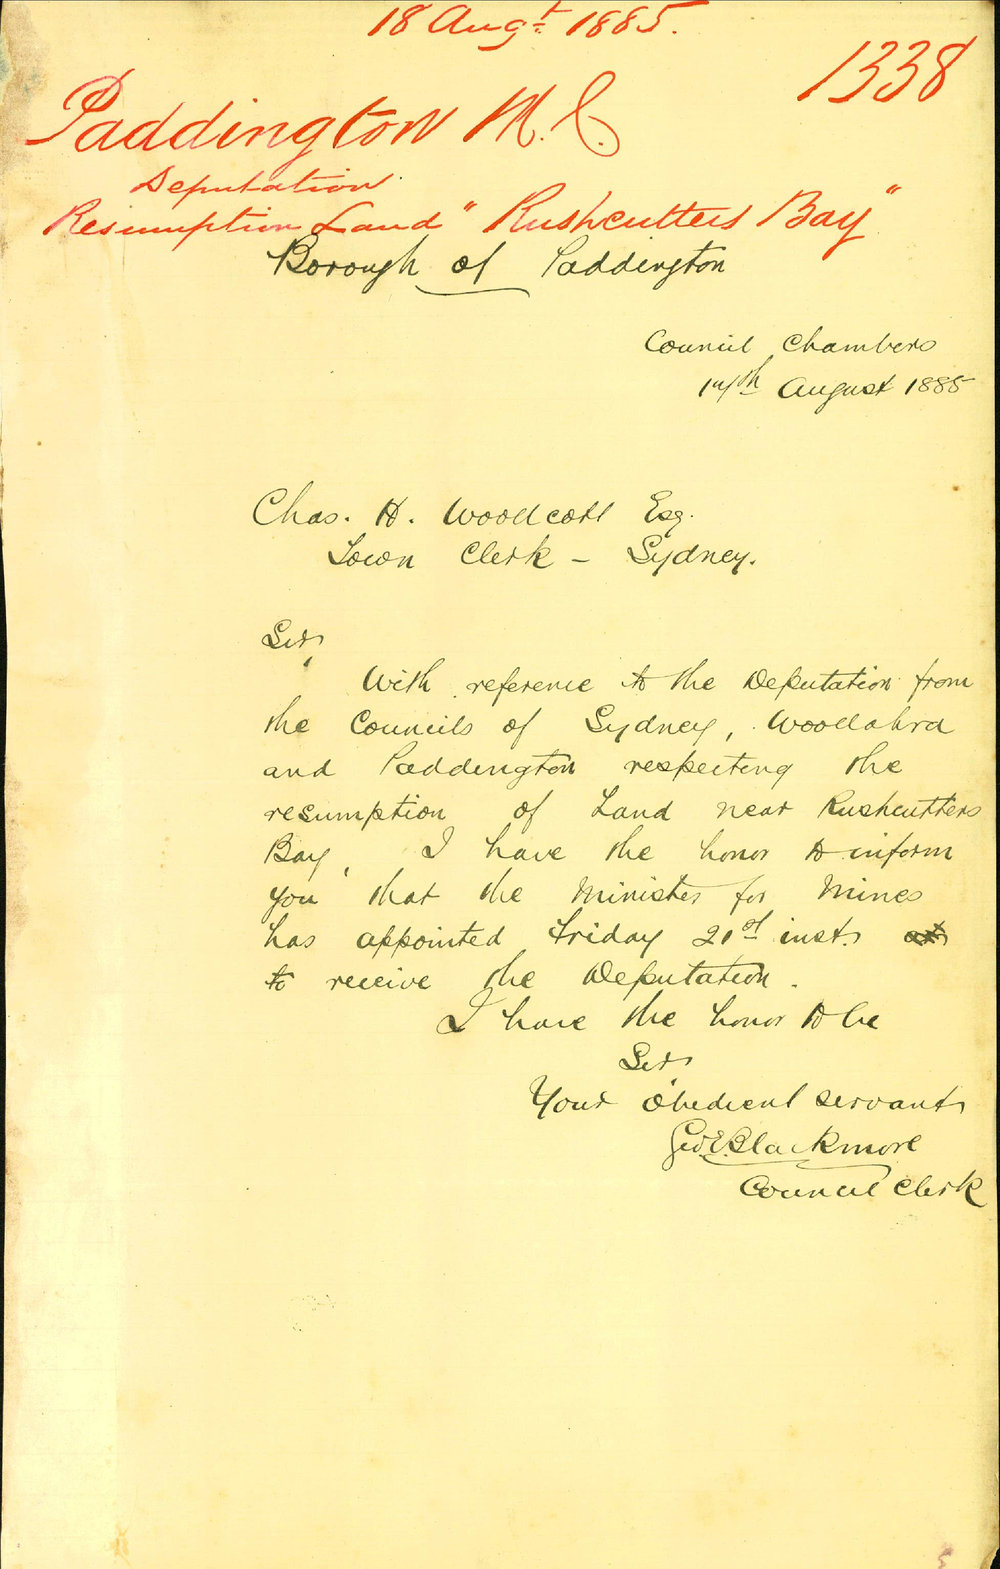 18 Augt. 1885.
1338
Paddington M.C.
Deputation
Resumption Land "Rushcutters Bay"
Borough of Paddington
Council Chambers
August 1885
Chas. H. Woolcott Esq.
Town Clerk - Sydney.
Sir,
With reference to the Deputation from
the Councils of Sydney, Woollahra
and Paddington respecting the
resumption of Land near Rushcutters
Bay, I have the honor to inform
you that the Minister for Mines
has appointed Friday 21st inst.
to receive the Deputation.
I have the honor to be
Sir,
Your obedient servant
Geo. E. Blackmore
Council Clerk